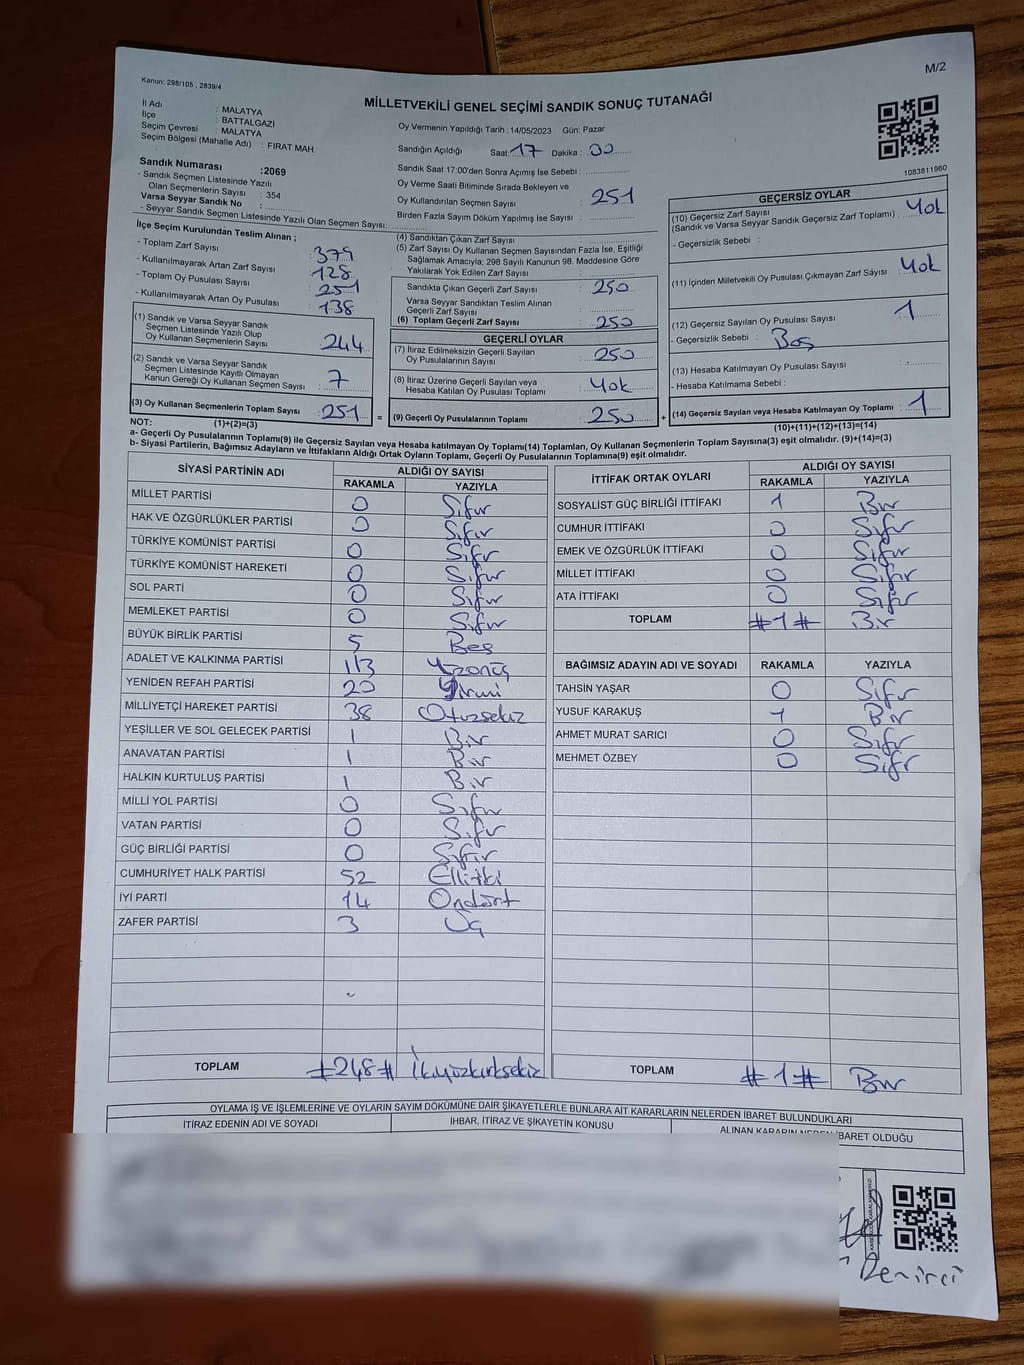 Kanun: 298/105 , 2839/4
M/2
MİLLETVEKİLİ GENEL SEÇİMİ SANDIK SONUÇ TUTANAĞI
İl Adı : MALATYA
İlçe : BATTALGAZİ
Seçim Çevresi : MALATYA
Seçim Bölgesi (Mahalle Adı) : FIRAT MAH.
Oy Vermenin Yapıldığı Tarih :14/05/2023 Gün: Pazar
Sandığın Açıldığı Saat: 17 Dakika : 00
Sandık Saat 17:00'den Sonra Açımış İse Sebebi :
Oy Verme Saati Bitiminde Sırada Bekleyen ve
Oy Kullandırılan Seçmen Sayısı : 251
Birden Fazla Sayım Döküm Yapılmış İse Sayısı :
1083811960
Sandık Numarası :2069
- Sandık Seçmen Listesinde Yazılı
Olan Seçmenlerin Sayısı : 354
Varsa Seyyar Sandık No :
- Seyyar Sandık Seçmen Listesinde Yazılı Olan Seçmen Sayısı:
İlçe Seçim Kurulundan Teslim Alınan ;
- Toplam Zarf Sayısı : 379
- Kullanılmayarak Artan Zarf Sayısı : 128
- Toplam Oy Pusulası Sayısı : 251
- Kullanılmayarak Artan Oy Pusulası : 138
(1) Sandık ve Varsa Seyyar Sandık
Seçmen Listesinde Yazılı Olup
Oy Kullanan Seçmenlerin Sayısı : 244
(2) Sandık ve Varsa Seyyar Sandık
Seçmen Listesinde Kayıtlı Olmayan
Kanun Gereği Oy Kullanan Seçmen Sayısı : 7
(3) Oy Kullanan Seçmenlerin Toplam Sayısı : 251 =
(4) Sandıktan Çıkan Zarf Sayısı :
(5) Zarf Sayısı Oy Kullanan Seçmen Sayısından Fazla İse, Eşitliği
Sağlamak Amacıyla; 298 Sayılı Kanunun 98. Maddesine Göre
Yakılarak Yok Edilen Zarf Sayısı :
Sandıkta Çıkan Geçerli Zarf Sayısı : 250
Varsa Seyyar Sandıktan Teslim Alınan
Geçerli Zarf Sayısı :
(6) Toplam Geçerli Zarf Sayısı : 250
GEÇERLİ OYLAR
(7) İtiraz Edilmeksizin Geçerli Sayılan
Oy Pusulalarının Sayısı : 250
(8) İtiraz Üzerine Geçerli Sayılan veya
Hesaba Katılan Oy Pusulası Toplamı : Yok
(9) Geçerli Oy Pusulalarının Toplamı : 250 +
GEÇERSİZ OYLAR
(10) Geçersiz Zarf Sayısı
(Sandık ve Varsa Seyyar Sandık Geçersiz Zarf Toplamı) : Yok
- Geçersizlik Sebebi :
(11) İçinden Milletvekili Oy Pusulası Çıkmayan Zarf Sayısı : Yok
(12) Geçersiz Sayılan Oy Pusulası Sayısı : 1
- Geçersizlik Sebebi : Boş
(13) Hesaba Katılmayan Oy Pusulası Sayısı :
- Hesaba Katılmama Sebebi :
(14) Geçersiz Sayılan veya Hesaba Katılmayan Oy Toplamı : 1
NOT: (1)+(2)=(3)
(10)+(11)+(12)+(13)=(14)
a- Geçerli Oy Pusulalarının Toplamı(9) ile Geçersiz Sayılan veya Hesaba katılmayan Oy Toplamı(14) Toplamları, Oy Kullanan Seçmenlerin Toplam Sayısına(3) eşit olmalıdır. (9)+(14)=(3)
b- Siyasi Partilerin, Bağımsız Adayların ve İttifakların Aldığı Ortak Oyların Toplamı, Geçerli Oy Pusulalarının Toplamına(9) eşit olmalıdır.
SİYASİ PARTİNİN ADI ALDIĞI OY SAYISI
RAKAMLA YAZIYLA
MİLLET PARTİSİ 0 Sıfır
HAK VE ÖZGÜRLÜKLER PARTİSİ 0 Sıfır
TÜRKİYE KOMÜNİST PARTİSİ 0 Sıfır
TÜRKİYE KOMÜNİST HAREKETİ 0 Sıfır
SOL PARTİ 0 Sıfır
MEMLEKET PARTİSİ 0 Sıfır
BÜYÜK BİRLİK PARTİSİ 5 Beş
ADALET VE KALKINMA PARTİSİ 113 Yüzonüç
YENİDEN REFAH PARTİSİ 20 Yirmi
MİLLİYETÇİ HAREKET PARTİSİ 38 Otuzsekiz
YEŞİLLER VE SOL GELECEK PARTİSİ 1 Bir
ANAVATAN PARTİSİ 1 Bir
HALKIN KURTULUŞ PARTİSİ 1 Bir
MİLLİ YOL PARTİSİ 0 Sıfır
VATAN PARTİSİ 0 Sıfır
GÜÇ BİRLİĞİ PARTİSİ 0 Sıfır
CUMHURİYET HALK PARTİSİ 52 Elliiki
İYİ PARTİ 14 Ondört
ZAFER PARTİSİ 3 Üç
TOPLAM #248# İkiyüzkırksekiz
İTTİFAK ORTAK OYLARI ALDIĞI OY SAYISI
RAKAMLA YAZIYLA
SOSYALİST GÜÇ BİRLİĞİ İTTİFAKI 1 Bir
CUMHUR İTTİFAKI 0 Sıfır
EMEK VE ÖZGÜRLÜK İTTİFAKI 0 Sıfır
MİLLET İTTİFAKI 0 Sıfır
ATA İTTİFAKI 0 Sıfır
TOPLAM #1# Bir
BAĞIMSIZ ADAYIN ADI VE SOYADI RAKAMLA YAZIYLA
TAHSİN YAŞAR 0 Sıfır
YUSUF KARAKUŞ 1 Bir
AHMET MURAT SARICI 0 Sıfır
MEHMET ÖZBEY 0 Sıfır
TOPLAM #1# Bir
OYLAMA İŞ VE İŞLEMLERİNE VE OYLARIN SAYIM DÖKÜMÜNE DAİR ŞİKAYETLERLE BUNLARA AİT KARARLARIN NELERDEN İBARET BULUNDUKLARI
İTİRAZ EDENİN ADI VE SOYADI İHBAR, İTİRAZ VE ŞİKAYETİN KONUSU ALINAN KARARIN NEDEN İBARET OLDUĞU
Demirci